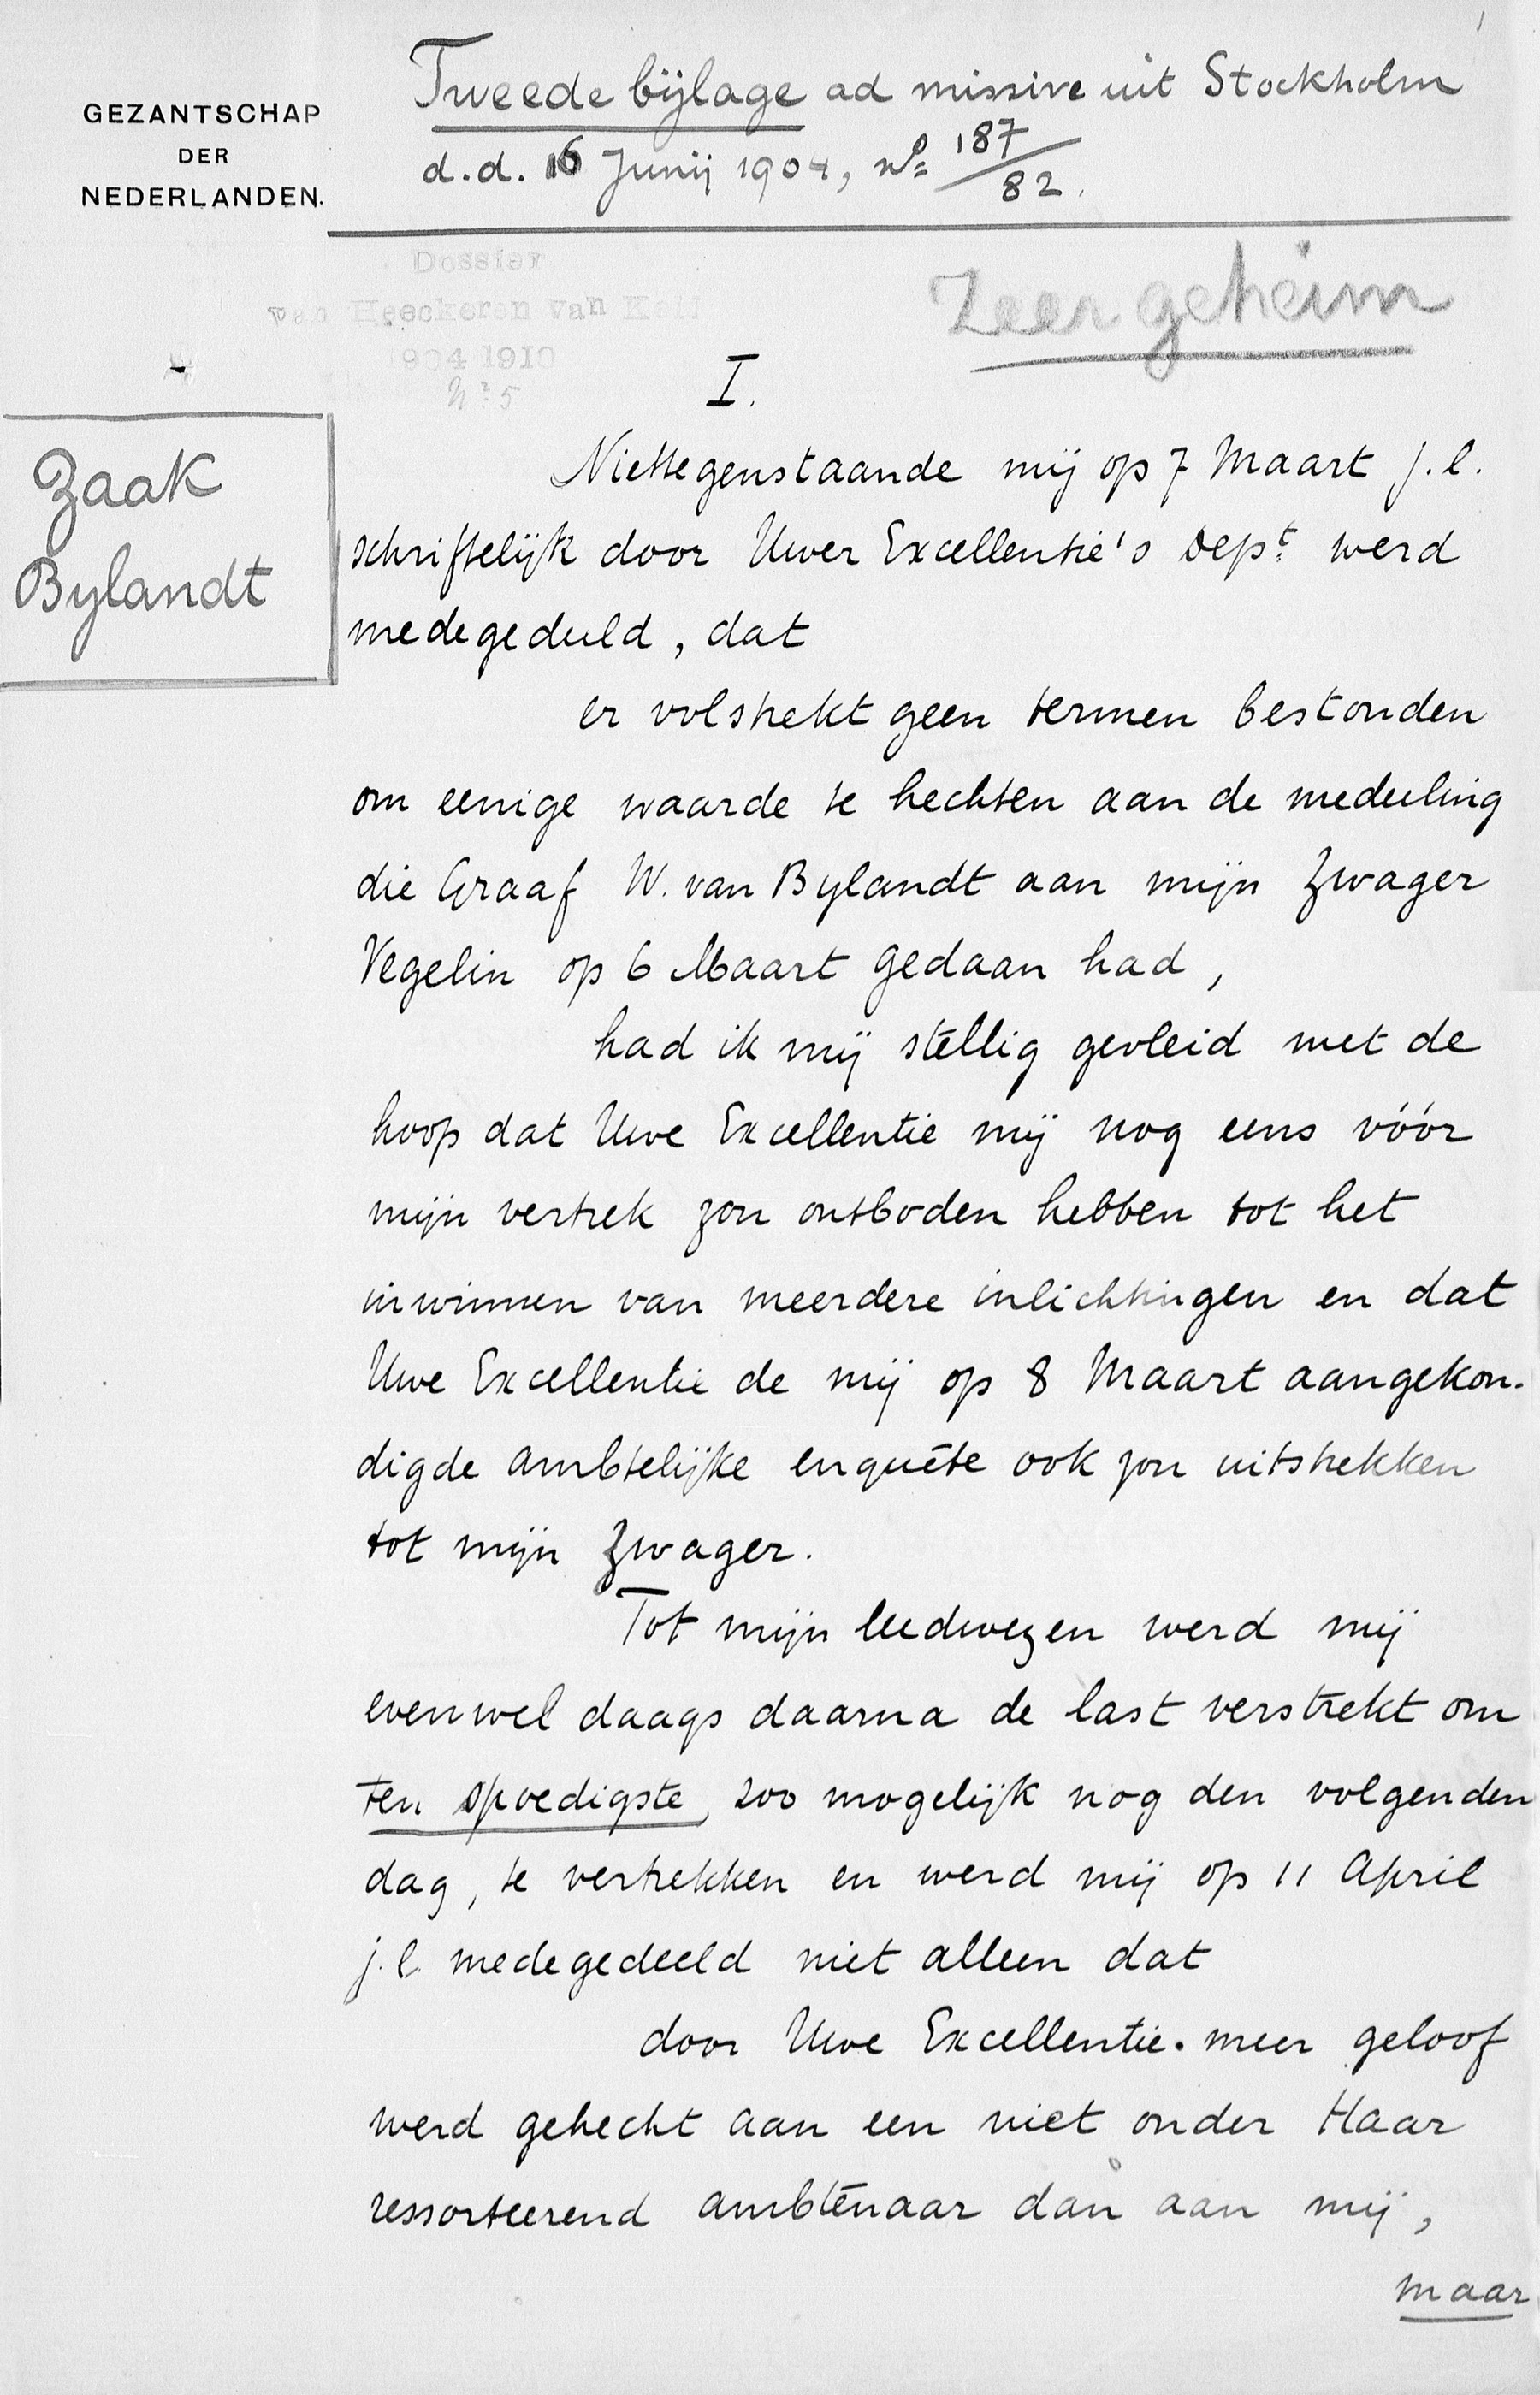 1
GEZANTSCHAP
DER
NEDERLANDEN.
Tweede bijlage ad missive uit Stockholm
d.d. 16 Junij 1904, No 187/82.
Dossier
van Heeckeren van Kell
1904 1910
No 5
Zeer geheim
I.
Zaak
Bylandt
Niettegenstaande mij op 7 Maart j.l.
schriftelijk door Uwer Excellentie's Dept. werd
medegedeeld, dat
er volstrekt geen termen bestonden
om eenige waarde te hechten aan de mededeeling
die Graaf W. van Bylandt aan mijn Zwager
Vegelin op 6 Maart gedaan had,
had ik mij stellig gevleid met de
hoop dat Uwe Excellentie mij nog eens vóór
mijn vertrek zou ontboden hebben tot het
inwinnen van meerdere inlichtingen en dat
Uwe Excellentie de mij op 8 Maart aangekon-
digde ambtelijke enquête ook zou uitstrekken
tot mijn Zwager.
Tot mijn leedwezen werd mij
evenwel daags daarna de last verstrekt om
ten spoedigste, zoo mogelijk nog den volgenden
dag, te vertrekken en werd mij op 11 April
j.l. medegedeeld niet alleen dat
door Uwe Excellentie meer geloof
werd gehecht aan een niet onder Haar
ressorteerend ambtenaar dan aan mij,
maar